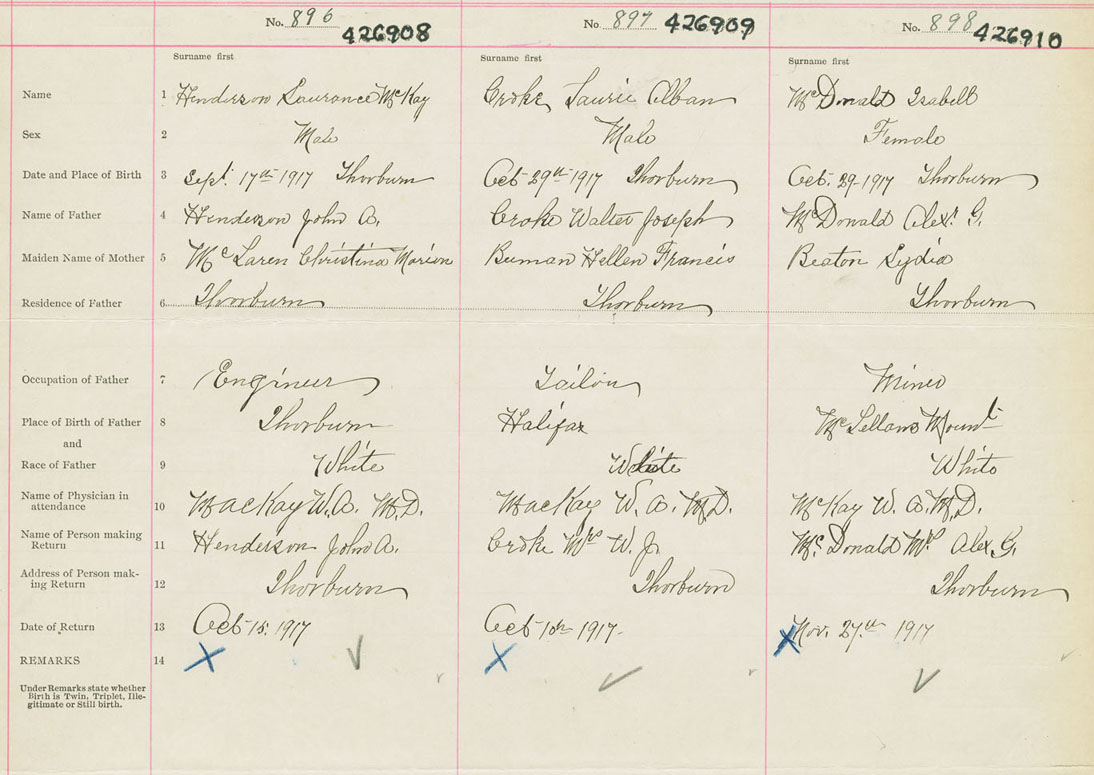 No. 896 426908 No 897 426909 No. 898 426910
Surname first Surname first Surname first
Name 1 Henderson Laurance McKay Croke Laurie Alban McDonald Isabell
Sex 2 Male Male Female
Date and Place of Birth 3 Sept. 17th 1917 Thorburn Oct 29th 1917 Thorburn Oct. 29-1917 Thorburn
Name of Father 4 Henderson John A. Croke Walter Joseph McDonald Alexr G.
Maiden Name of Mother 5 McLaren Christina Marion Hellen Francis Beaton Lydia
Residence of Father 6 Thorburn Thorburn Thorburn
Occupation of Father 7 Engineer Tailor Miner
Place of Birth of Father 8 Thorburn Halifax McLellans Mount
and
Race of Father 9 White White White
Name of Physician in
attendance 10 MacKay W. A. M.D. MacKay W. A. M.D. McKay W. A. M.D.
Name of Person making
Return 11 Henderson John A. Croke Mrs W. J. McDonald Mrs Alex. G.
Address of Person mak-
ing Return 12 Thorburn Thorburn Thorburn
Date of Return 13 Oct 15. 1917 Oct 10th 1917- Nov. 27th 1917
REMARKS 14
Under Remarks state whether
Birth is Twin, Triplet, Ille-
gitimate or Still birth.